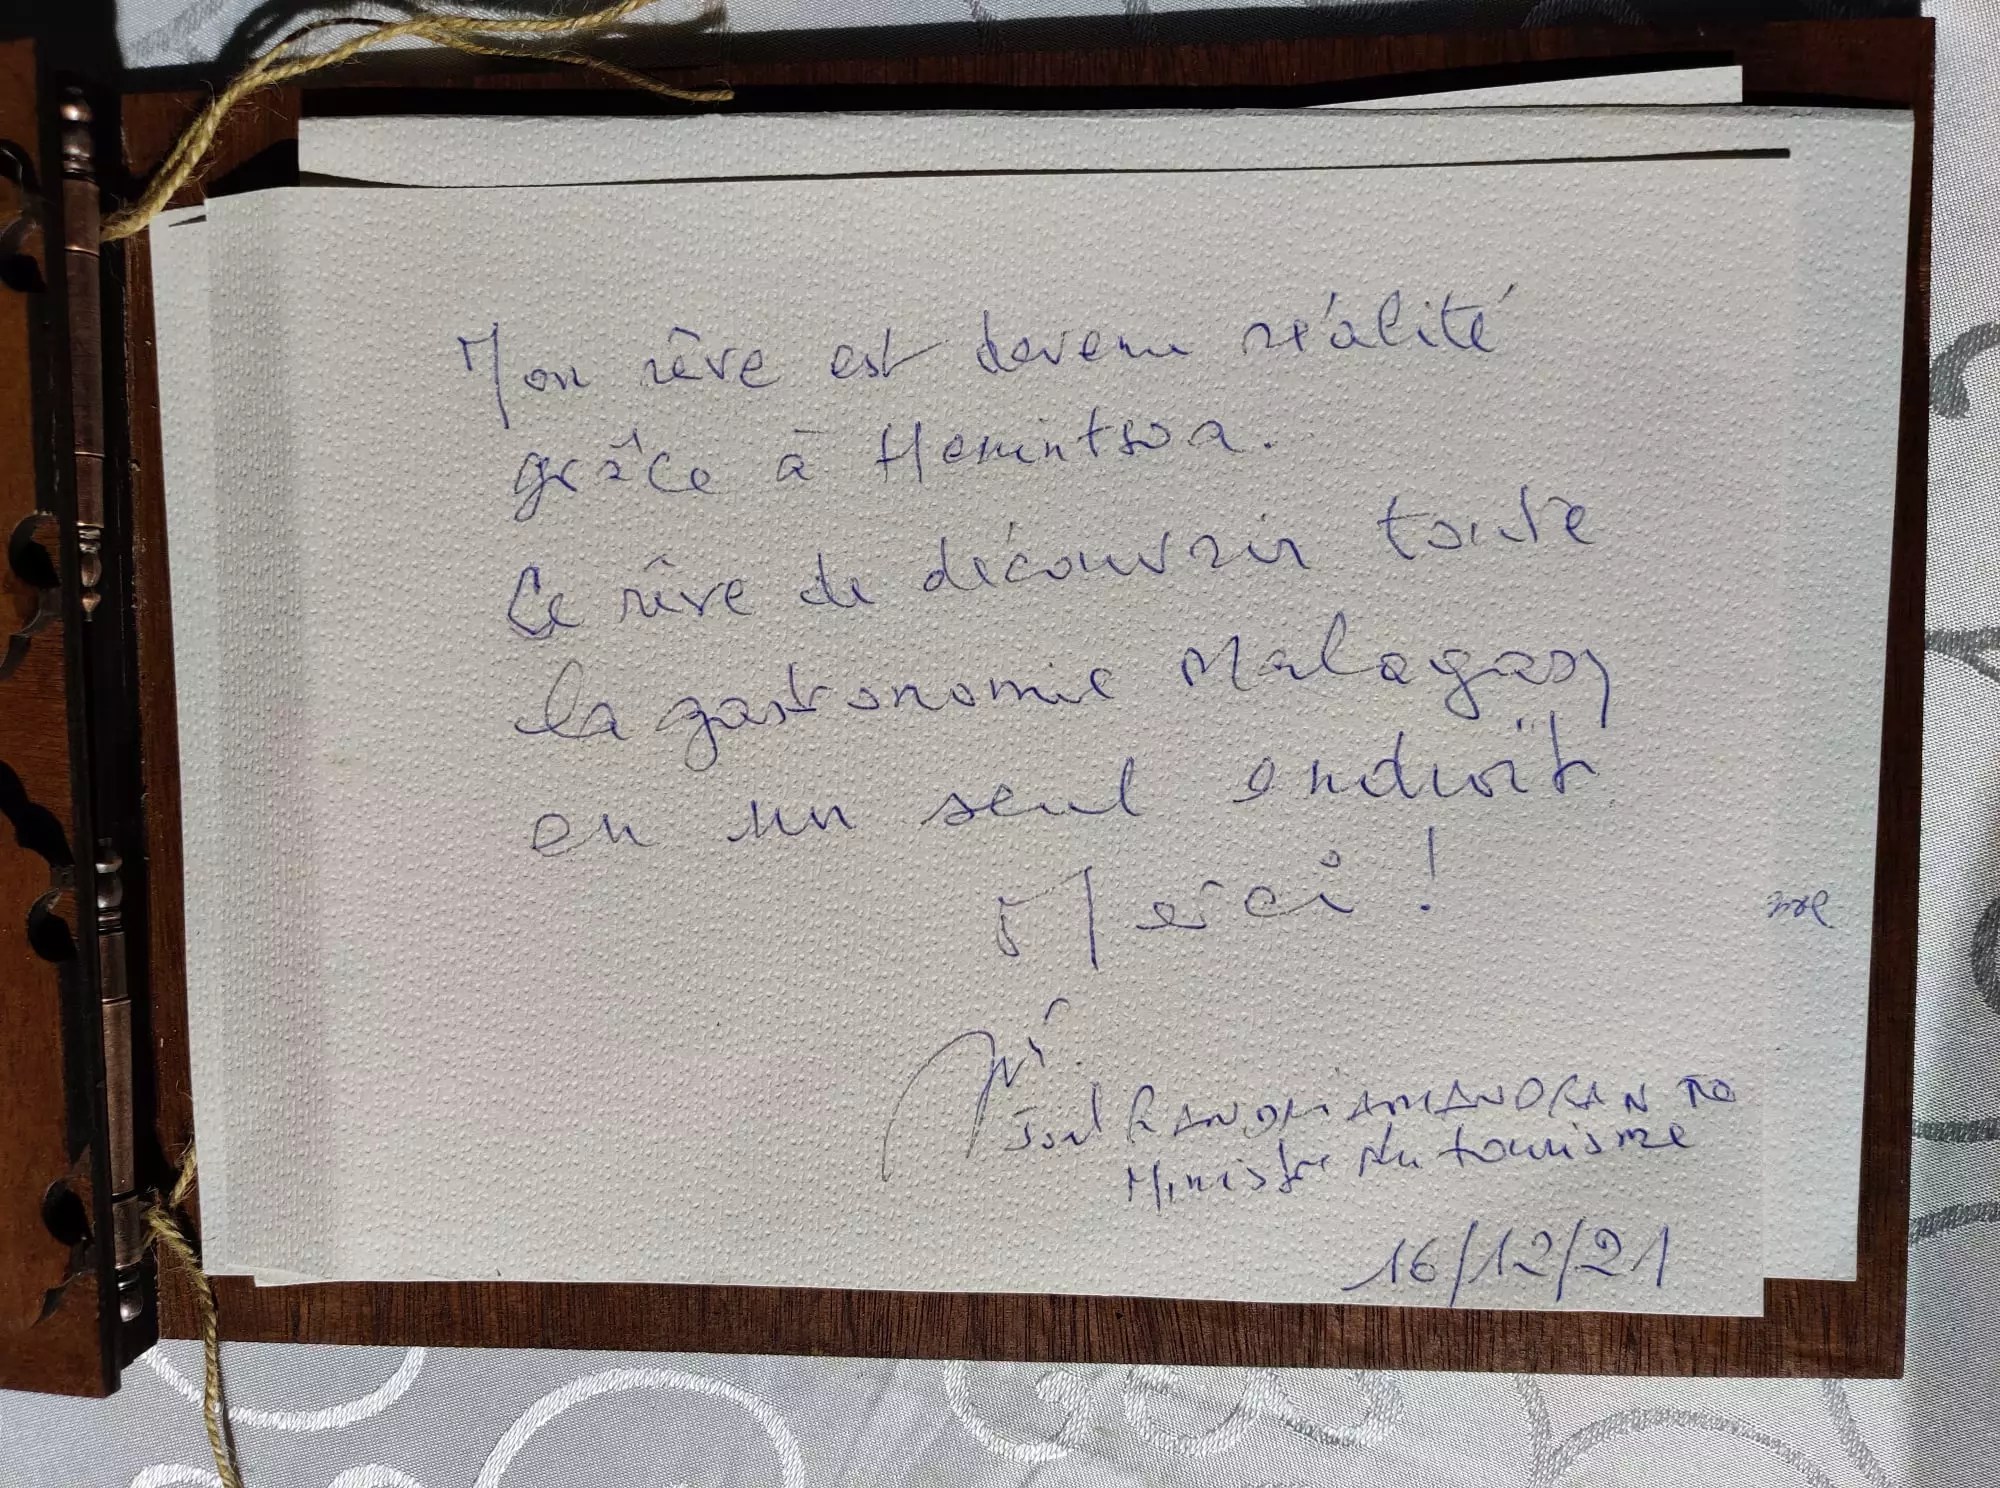 Mon rêve est devenu réalité
grâce à Herintsoa.
Ce rêve de découvrir toute
la gastronomie Malagasy
en un seul endroit
Merci !
Joël RANDRIAMANDRANTO
Ministre du tourisme
16/12/21